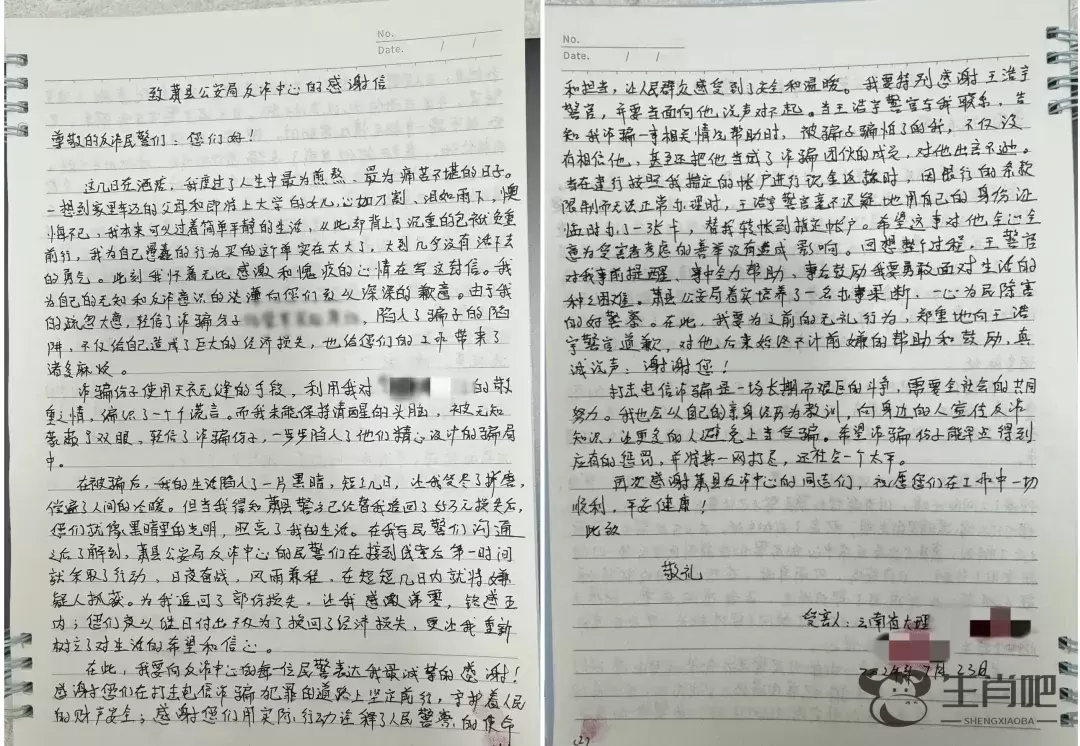 No.
Date. / /
致萧县公安局反诈中心的感谢信
尊敬的反诈民警们：您们好！
这几日在洒症，我度过了人生中最为煎熬、最为痛苦不堪的日子。
一想到家里年迈的父母和即将上大学的女儿，心如刀割、泪如雨下，懊
悔不已，我本来可以过着简单平静的生活，从此却背上了沉重的包袱负重
前行，我为自己愚蠢的行为买的这个单实在太大了，大到几乎没有活下去
的勇气。此刻我怀着无比感激和愧疚的心情在写这封信。我
为自己的无知和反诈意识的淡薄向您们致以深深的歉意。由于我
的疏忽大意，轻信了诈骗分子
，陷入了骗子的陷
阱，不仅给自己造成了巨大的经济损失，也给您们的工作带来了
诸多麻烦。
诈骗份子使用天衣无缝的手段，利用我对
的敬
重之情，编织了一个个谎言。而我未能保持清醒的头脑，被无知
蒙蔽了双眼，轻信了诈骗份子，一步步陷入了他们精心设计的骗局
中。
在被骗后，我的生活陷入了一片黑暗，短短几日，让我受尽了折磨，
偿遍了人间的冷暖。但当我得知萧县警方已经替我追回了55万元损失后，
您们就像黑暗里的光明，照亮了我的生活。在我与民警们沟通
之后了解到，萧县公安局反诈中心的民警们在接到线索后第一时间
就采取了行动，日夜奋战，风雨兼程，在短短几日内就将嫌
疑人抓获。为我追回了部份损失，让我感激涕零，铭感五
内；您们夜以继日付出不仅为了挽回了经济损失，更让我重新
树立了对生活的希望和信心。
在此，我要向反诈中心的每一位民警表达我最诚挚的感谢！
感谢您们在打击电信诈骗犯罪的道路上坚定前行，守护着人民
的财产安全；感谢您们用实际行动诠释了人民警察的使命
No.
Date. / /
和担当，让人民群众感受到了安全和温暖。我要特别感谢王浩宇
警官，并要当面向他说声对不起。当王浩宇警官与我联系，告
知我诈骗一事相关情况帮助时，被骗子骗怕了的我，不仅没
有相信他，甚至还把他当成了诈骗团伙的成员，对他出言不逊。
当在建行按照我指定的帐户进行现金返款时，因银行的系数
限制而无法正常办理时，王浩宇警官毫不迟疑地用自己的身份证
临时办了一张卡，替我转帐到指定帐户。希望这事对他全心全
意为受害者考虑的善举没有造成影响。回想整个过程，王警官
对我事前提醒、事中全力帮助、事后鼓励我要勇敢面对生活的
种种困难。萧县公安局着实培养了一名办事果断、一心为民除害
的好警察。在此，我要为之前的无礼行为，郑重地向王浩
宇警官道歉，对他后来始终不计前嫌的帮助和鼓励，真
诚说声：谢谢您！
打击电信诈骗是一场长期而艰巨的斗争，需要全社会的共同
努力。我也会以自己的亲身经历为教训，向身边的人宣传反诈
知识，让更多的人避免上当受骗。希望诈骗份子能早点得到
应有的惩罚，并将其一网打尽，还社会一个太平。
再次感谢萧县反诈中心的同志们，祝愿您们在工作中一切
顺利，平安健康！
此致
敬礼
受害人：云南省大理
2024年7月23日
(2)
生肖吧
SHENGXIAOBA